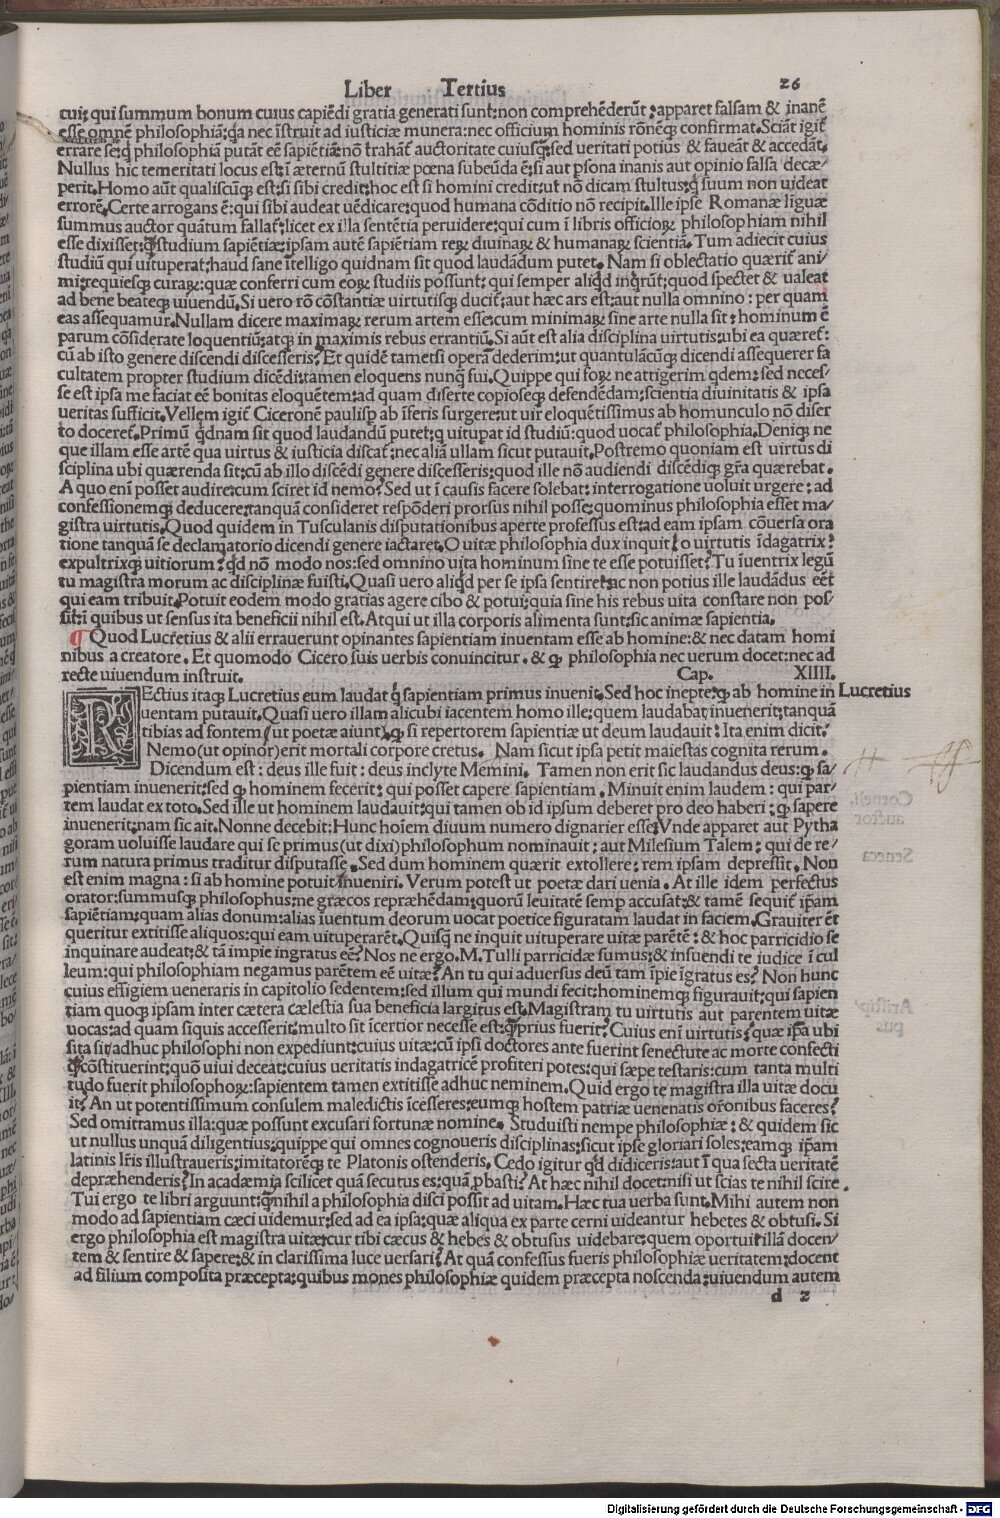 Liber Tertius 26
cuiꝰ qui summum bonum cuius capiēdi gratia generati sunt:non comprehēderūt:apparet falsam & inanē
esse omnē philosophiā:ꝗa nec īstruit ad iusticiæ munera:nec officium hominis rōnēqꝫ confirmat.Sciāt igiť
errare se:ꝗ philosophiā putāt eē sapiētiā:nō trahāť auctoritate cuiusꝗꝫ:sed veritati potius & faueāt & accedāt.
Nullus hic temeritati locus est:ī æternū stultitiæ pœna subeūda ē:si aut psona inanis aut opinio falsa decæ/
perit.Homo aūt qualiscūqꝫ est:si sibi credit:hoc est si homini credit:ut nō dicam stultus:ꝗ suum non uideat
errorē.Certe arrogans ē:qui sibi audeat uēdicare:quod humana cōditio nō recipit.Ille ipse Romanæ liguæ
summus auctor quātum fallať:licet ex illa sentētia peruidere:qui cum ī libris officioꝝ philosophiam nihil
esse dixisset:ꝗ̄ studium sapiētiæ:ipsam autē sapiētiam reꝝ diuinaꝝ & humanaꝝ scientiā.Tum adiecit cuius
studiū qui uituperat:haud sane ītelligo quidnam sit quod laudādum putet. Nam si oblectatio quæriť ani/
mi:requiesqꝫ curaꝝ:quæ conferri cum eoꝝ studiis possunt: qui semper aliꝗd inꝗrūt:quod spectet & ualeat
ad bene beateqꝫ uiuendū.Si uero rō cōstantiæ virtutisqꝫ duciť:aut hæc ars est:aut nulla omnino : per quam
eas assequamur.Nullam dicere maximaꝝ rerum artem esse:cum minimaꝝ sine arte nulla sit : hominum ē
parum cōsiderate loquentiū:atqꝫ in maximis rebus errantiū.Si aūt est alia disciplina uirtutis:ubi ea quæreť:
cū ab isto genere discendi discesseris?Et quidē tametsi operā dederim:ut quantulācūqꝫ dicendi assequerer fa
cultatem propter studium dicēdi:tamen eloquens nunꝗ̄ fui.Quippe qui foꝝ ne attigerim ꝗdem: sed neces/
se est ipsa me faciat eē bonitas eloquētem:ad quam diserte copioseqꝫ defendēdam:scientia diuinitatis & ipsa
ueritas sufficit.Vellem igiť Ciceronē paulisꝑ ab īferis surgere:ut uir eloquētissimus ab homunculo nō diser
to doceret.Primū ꝗdnam sit quod laudandū putet:q uitupat id studiū:quod uocať philosophia.Deniqꝫ ne
que illam esse artē qua uirtus & iusticia discať:nec aliā ullam sicut putauit.Postremo quoniam est uirtus di
sciplina ubi quærenda sit:cū ab illo discēdi genere discesseris:quod ille nō audiendi discēdiqꝫ gr̄a quærebat.
A quo enī posset audire:cum sciret id nemo?Sed ut ī causis facere solebat: interrogatione uoluit urgere : ad
confessionemqꝫ deducere:tanquā consideret respōderi prorsus nihil posse:quominus philosophia esset ma/
gistra uirtutis.Quod quidem in Tusculanis disputationibus aperte professus est:ad eam ipsam cōuersa ora
tione tanquā se declamatorio dicendi genere iactaret.O uitæ philosophia dux inquit:o uirtutis īdagatrix:
expultrixqꝫ uitiorum?ꝗd nō modo nos:sed omnino uita hominum sine te esse potuisset?Tu īuentrix legū
tu magistra morum ac disciplinæ fuisti.Quasi uero aliꝗd per se ipsa sentiret:ac non potius ille laudādus eēt
qui eam tribuit.Potuit eodem modo gratias agere cibo & potui:quia sine his rebus uita constare non pos/
sit:ī quibus ut sensus ita beneficii nihil est.Atqui ut illa corporis alimenta sunt:sic animæ sapientia.
¶ Quod Lucretius & alii errauerunt opinantes sapientiam inuentam esse ab homine:& nec datam homi
nibus a creatore. Et quomodo Cicero suis uerbis conuincitur. & ꝙ philosophia nec uerum docet:nec ad
recte uiuendum instruit. Cap. XIIII.
REctius itaqꝫ Lucretius eum laudat ꝗ sapientiam primus inuenit.Sed hoc inepte:ꝙ ab homine in Lucretius
uentam putauit.Quasi uero illam alicubi iacentem homo ille:quem laudabat inuenerit:tanquā
tibias ad fontem(ut poetæ aiunt).ꝙ si repertorem sapientiæ ut deum laudauit : Ita enim dicit:
Nemo(ut opinor)erit mortali corpore cretus. Nam sicut ipsa petit maiestas cognita rerum.
Dicendum est : deus ille fuit : deus inclyte Memini. Tamen non erit sic laudandus deus:ꝙ sa/
pientiam inuenerit:sed ꝙ hominem fecerit: qui posset capere sapientiam. Minuit enim laudem : qui par/
tem laudat ex toto.Sed ille ut hominem laudauit:qui tamen ob id ipsum deberet pro deo haberi : ꝙ sapere
inuenerit:nam sic ait.Nonne decebit:Hunc hoīem diuum numero dignarier esse:Vnde apparet aut Pytha
goram uoluisse laudare qui se primus(ut dixi)philosophum nominauit : aut Milesium Talem : qui de re/
rum natura primus traditur disputasse.Sed dum hominem quærit extollere: rem ipsam depressit. Non
est enim magna : si ab homine potuit inueniri. Verum potest ut poetæ dari uenia. At ille idem perfectus
orator:summusqꝫ philosophus:ne græcos repræhēdam:quorū leuitatē semp accusat:& tamē sequiť ip̄am
sapiētiam:quam alias donum:alias īuentum deorum uocat poetice figuratam laudat in faciem.Grauiter ēt
queritur extitisse aliquos:qui eam uituperarēt.Quisꝗ̄ ne inquit uituperare uitæ parētē : & hoc parricidio se
inquinare audeat:& tā impie ingratus eē?Nos ne ergo.M.Tulli parricidæ sumus:& insuendi te iudice ī cul
leum:qui philosophiam negamus parētem eē uitæ?An tu qui aduersus deū tam īpie īgratus es? Non hunc
cuius effigiem ueneraris in capitolio sedentem:sed illum qui mundi fecit:hominemqꝫ figurauit:qui sapien
tiam quoqꝫ ipsam inter cætera cælestia sua beneficia largitus est.Magistram tu uirtutis aut parentem uitæ
uocas:ad quam siquis accesserit:multo sit īcertior necesse est:ꝗ̄ prius fuerit?Cuius enī uirtutis?quæ ip̄a ubi
sita sit/adhuc philosophi non expediunt:cuius uitæ:cū ipsi doctores ante fuerint senectute ac morte confecti
ꝗ̄ cōstituerint:quō uiui deceat:cuius ueritatis indagatricē profiteri potes:qui sæpe testaris:cum tanta multi
tudo fuerit philosophoꝝ:sapientem tamen extitisse adhuc neminem.Quid ergo te magistra illa uitæ docu
it? An ut potentissimum consulem maledictis īcesseres:eumqꝫ hostem patriæ uenenatis or̄onibus faceres?
Sed omittamus illa:quæ possunt excusari fortunæ nomine. Studuisti nempe philosophiæ : & quidem sic
ut nullus unquā diligentius:quippe qui omnes cognoueris disciplinas:sicut ipse gloriari soles:eamqꝫ ip̄am
latinis lr̄is illustraueris:imitatorēqꝫ te Platonis ostenderis.Cedo igitur ꝗd didiceris:aut ī qua secta ueritatē
depræhenderis?In academia scilicet quā secutus es:quā ꝓbasti?At hæc nihil docet:nisi ut scias te nihil scire.
Tui ergo te libri arguunt:ꝗ̄ nihil a philosophia disci possit ad uitam.Hæc tua uerba sunt.Mihi autem non
modo ad sapientiam cæci uidemur:sed ad ea ipsa:quæ aliqua ex parte cerni uideantur hebetes & obtusi.Si
ergo philosophia est magistra uitæ:cur tibi cæcus & hebes & obtusus uidebare:quem oportuit illā docen/
tem & sentire & sapere:& in clarissima luce uersari?At quā confessus fueris philosophiæ ueritatem:docent
ad filium composita præcepta:quibus mones philosophiæ quidem præcepta noscenda:uiuendum autem
d 2
Digitalisierung gefördert durch die Deutsche Forschungsgemeinschaft - DFG